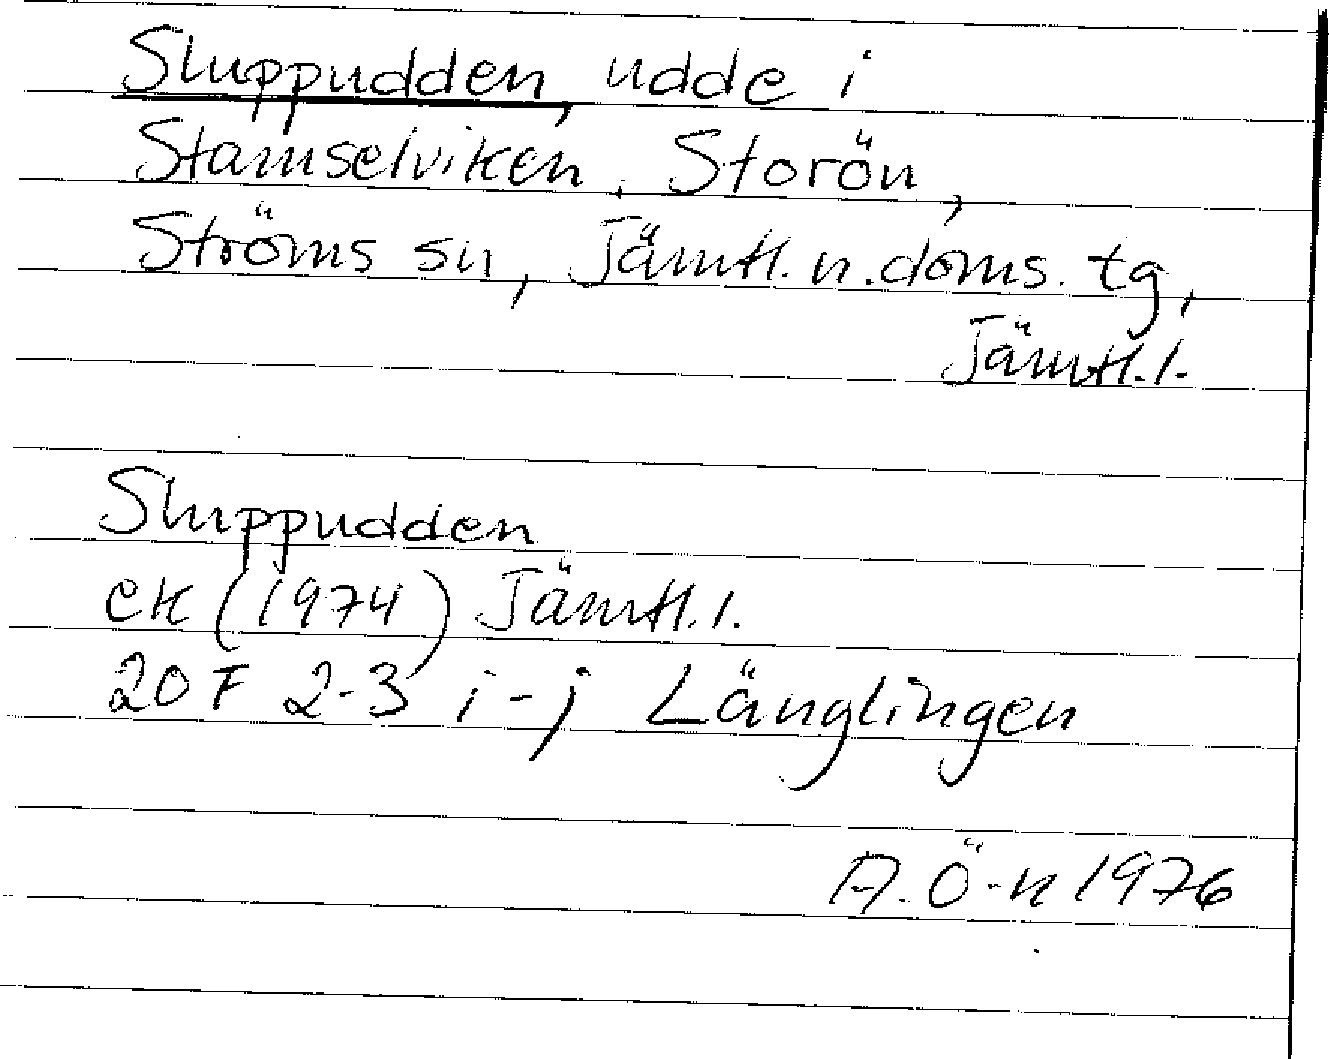 Sluppudden, udde i
Stamselviken, Storön,
Ströms sn, Jämtl. n. doms. tg,
Jämtl. l.
Sluppudden
ek (1974) Jämtl. l.
20 F 2-3 i-j Länglingen
A. Ö-n 1976